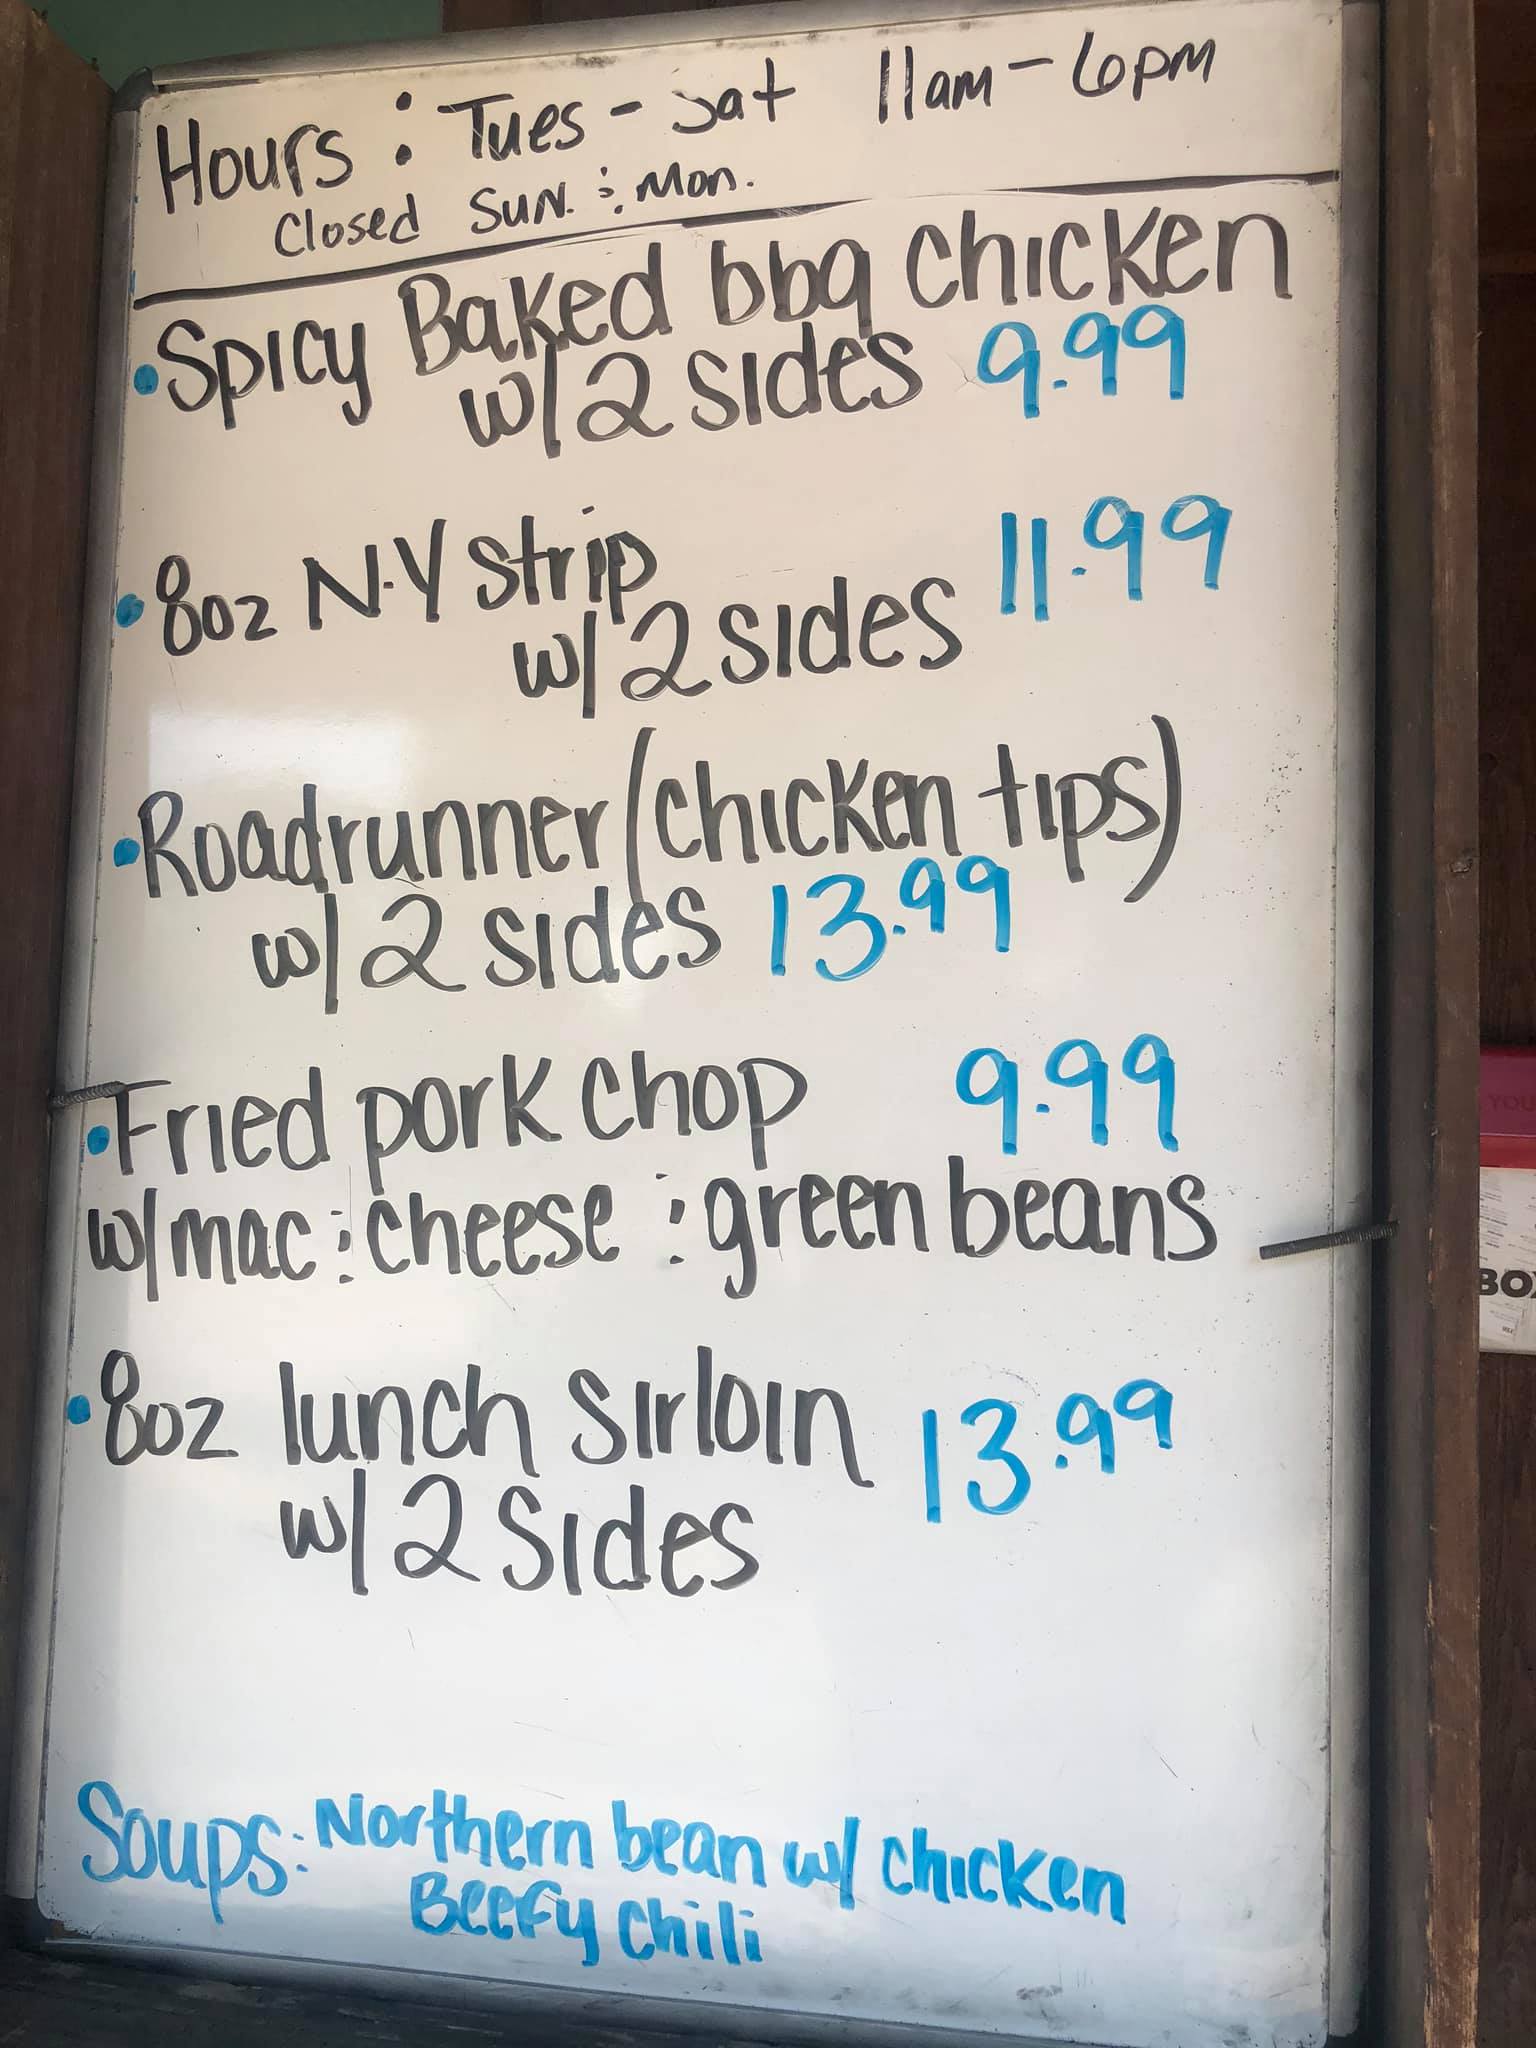 Hours : Tues - Sat 11am - 6pm
Closed Sun. & Mon.
• Spicy Baked bbq chicken
w/ 2 sides 9.99
• 8oz N.Y Strip 11.99
w/ 2 sides
• Roadrunner (chicken tips)
w/ 2 sides 13.99
• Fried pork chop 9.99
w/ mac & cheese & green beans
• 8oz lunch sirloin 13.99
w/ 2 Sides
Soups: Northern bean w/ chicken
Beefy chili
YOU
BOX